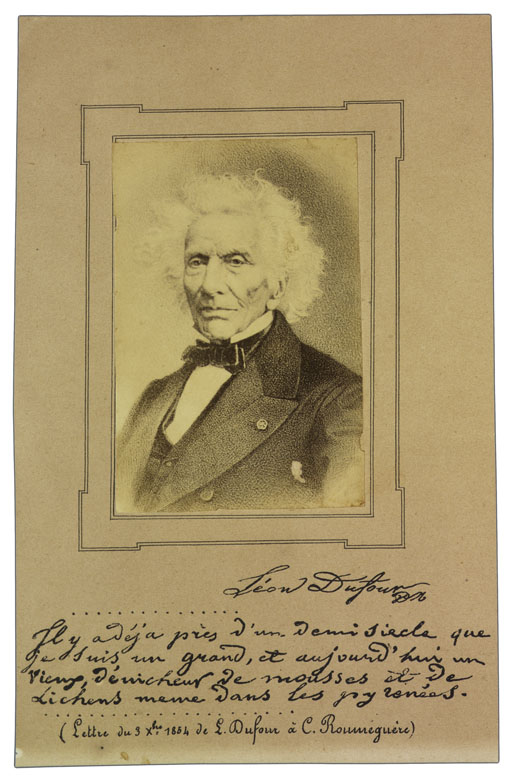 Léon Dufour
D.M
Il y a déja près d'un demi siecle que
je suis un grand, et aujourd'hui un
vieux dénicheur de mousses et de
Lichens meme dans les pyrenées.
(Lettre du 3 Xbre 1854 de L. Dufour à C. Rouméguère)